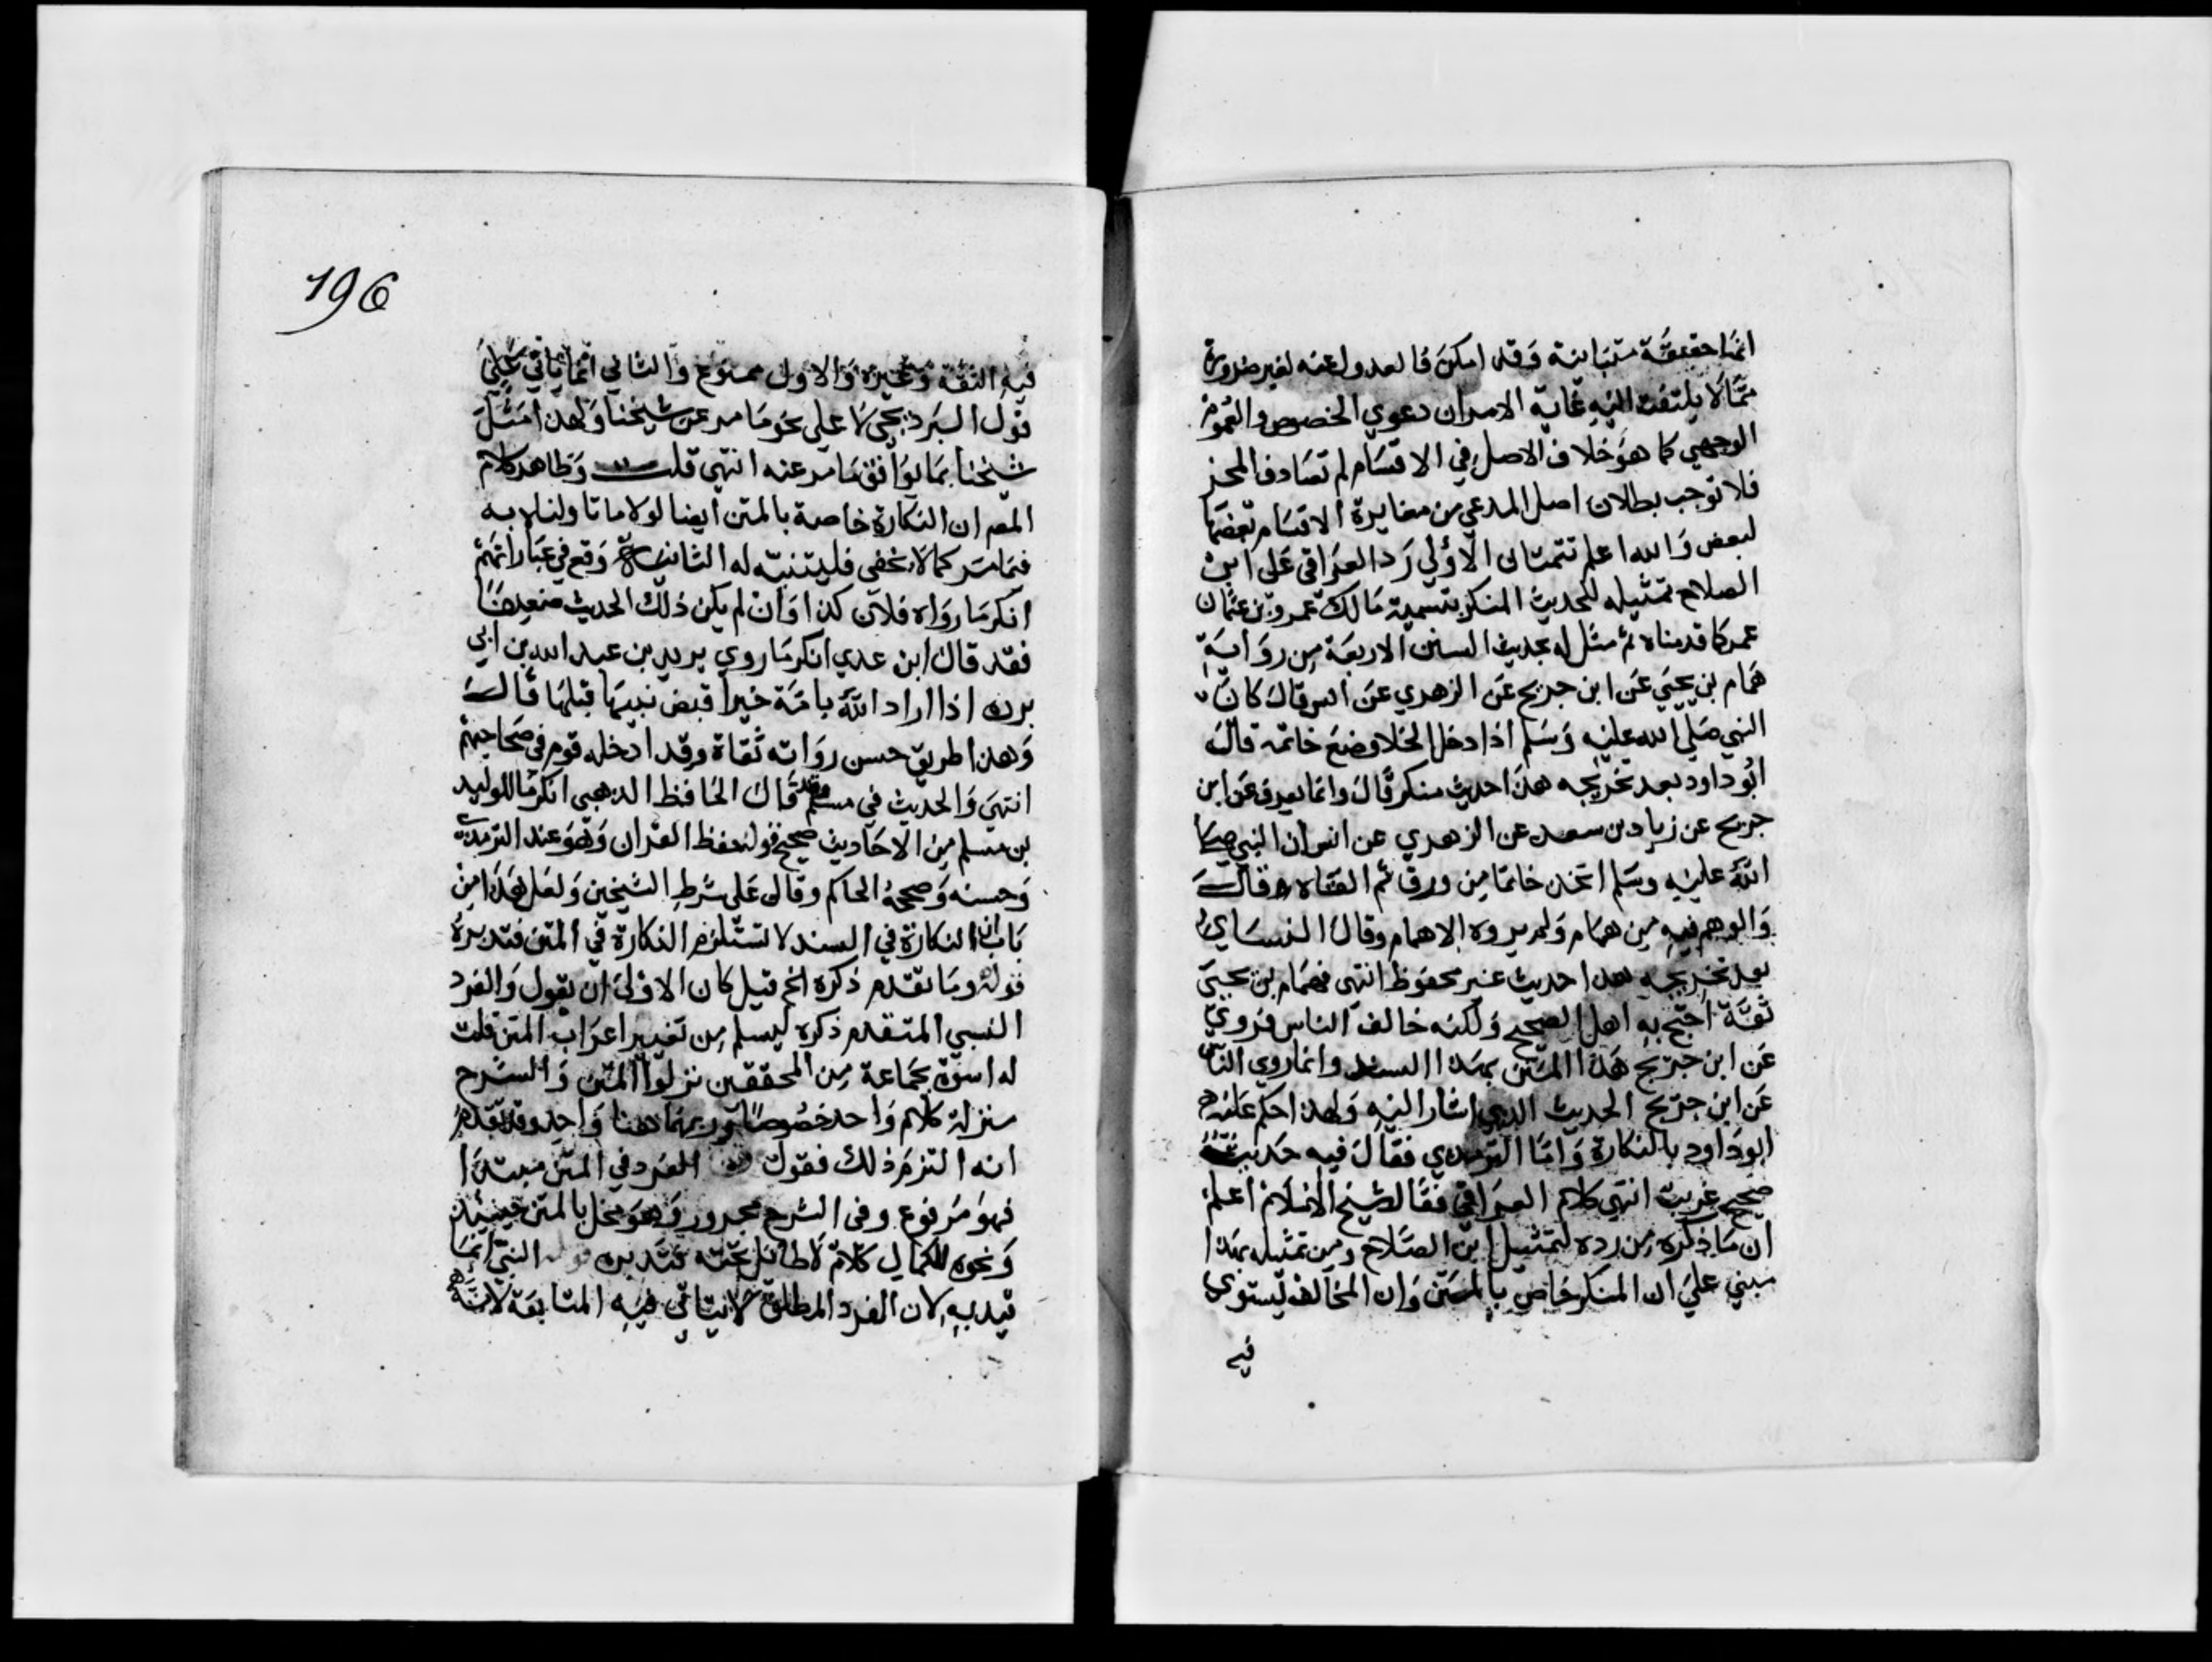 انها حقيقة متباينة وقد امكن فالعدول عنه لغير ضرورة
مما لا يلتفت اليه غاية الامر ان دعوي الخصوص والعموم
الوجهي كما هو خلاف الاصل في الاقسام لم تصادف المحز
فلا توجب بطلان اصل المدعي من مغايرة الاقسام بعضها
لبعض والله اعلم تتمتان الاولي رد العراقي على ابن
الصلاح تمثيله للحديث المنكر بتسمية مالك عمرو بن عثمان
عمر كما قدمناه ثم مثل له بحديث السنن الاربعة من رواية
همام بن يحيي عن ابن جريج عن الزهدي عن انس قال كان
النبي صلي الله عليه وسلم اذا دخل الخلا وضع خاتمه قال
ابو داود بعد تخريجه هذا حديث منكر قال وانما يعرف عن ابن
جريج عن زياد بن سعد عن الزهدي عن انس ان النبي صلي
الله عليه وسلم اتخذ خاتما من ورق ثم القاه وقال
والوهم فيه من همام ولم يروه الا همام وقال النساي
بعد تخريجه هذا حديث غير محفوظ انتهى فهمام بن يحيي
ثقة احتج به اهل الصحيح ولكنه خالف الناس فروي
عن ابن جريج هذا المتن بهذا السند وانما روي الناس
عن ابن جريج الحديث الذي اشار اليه ولهذا حكم عليه
ابو داود بالنكارة واما الترمذي فقال فيه حديث
صحيح غريب انتهي كلام العراقي فقال شيخ الاسلام اعلم
ان ما ذكره من رده لتمثيل ابن الصلاح ومن تمثيله بهذا
مبني علي ان المنكر خاص بالمتن وان المخالف يستوي
فيه
196
فيه الثقة وغيره والاول ممنوع والثاني انما ياتي علي
قول البرديجي لا على نحو ما مر عن شيخنا ولهذا مثل
شيخنا بما يوافق ما مر عنه انتهي قلت وظاهر كلام
المصر ان النكارة خاصة بالمتن ايضا لولا ما تاولناه به
فيما مر كما لا يخفى فليتنبه له الثانية وقع في عباراتهم
انكر ما رواه فلان كذا وان لم يكن ذلك الحديث ضعيفا
فقد قال ابن عدي انكر ما روي بريد بن عبد الله بن ابي
برده اذا اراد الله بامة خيرا قبض نبيها قبلها قال
وهذا طريق حسن رواته ثقاة وقد ادخله قوم في صحاحهم
انتهي والحديث في مسلم وقد قال الحافظ الذهبي انكر ما للوليد
بن مسلم من الاحاديث صحيح قوله حفظ القران وهو عند الترمذي
وحسنه وصححه الحاكم وقال على شرط الشيخين ولعل هذا من
باب ان النكارة في السند لا تستلزم النكارة في المتن فتدبره
قوله وما تقدم ذكره الخ قيل كان الاولى ان يقول والفرد
النسبي المتقدم ذكره ليسلم من تغيير اعراب المتن قلت
له اسوة بجماعة من المحققين نزلوا المتن والشرح
منزلة كلام واحد خصوصا وربهما هنا واحد وقد تقدم
انه التزم ذلك فقول الفرد في المتن مبتدا
فهو مرفوع وفى الشرح مجرور وهو مخل بالمتن حينئذ
ونحوه للكمال كلام لا طائل تحته فتدبره قوله النبي انما
قيد به لان الفرد المطلق لا يتاتي فيه المتابعة لانه